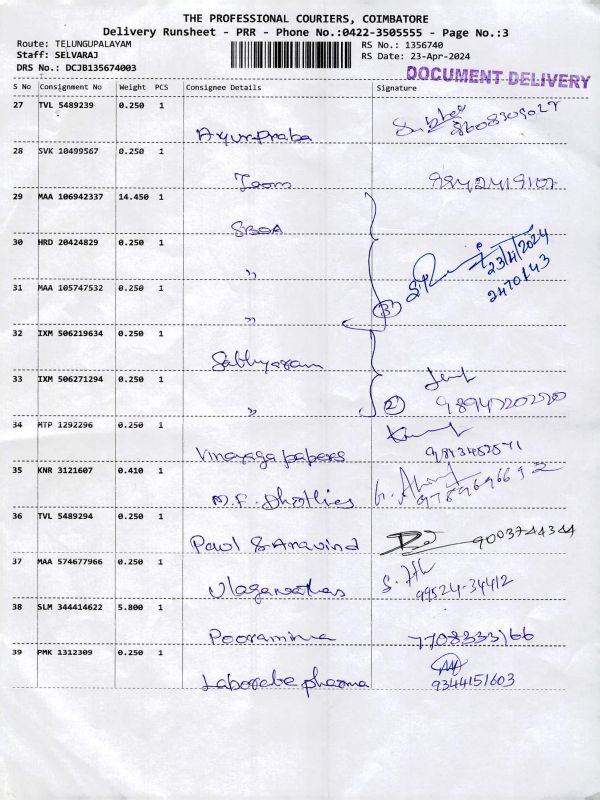 THE PROFESSIONAL COURIERS, COIMBATORE
Delivery Runsheet - PRR - Phone No.:0422-3505555 - Page No.:3
Route: TELUNGUPALAYAM
Staff: SELVARAJ
DRS No.: DCJB135674003
RS No.: 1356740
RS Date: 23-Apr-2024
DOCUMENT DELIVERY
S No Consignment No Weight PCS Consignee Details Signature
27 TVL 5489239 0.250 1
Ayurpraba
28 SVK 10499567 0.250 1
Team
29 MAA 106942337 14.450 1
SBOA
30 HRD 20424829 0.250 1
"
23/4/2024
2470143
31 MAA 105747532 0.250 1
"
3
32 IXM 506219634 0.250 1
33 IXM 506271294 0.250 1
" 2 9894720220
34 MTP 1292296 0.250 1
Vinayaga papers
35 KNR 3121607 0.410 1
M.F. Dhotties 9789696692
36 TVL 5489294 0.250 1
Paul & Aravind 9003744344
37 MAA 574677966 0.250 1
99524-34412
38 SLM 344414622 5.800 1
7708333166
39 PMK 1312309 0.250 1
pharma 9344151603